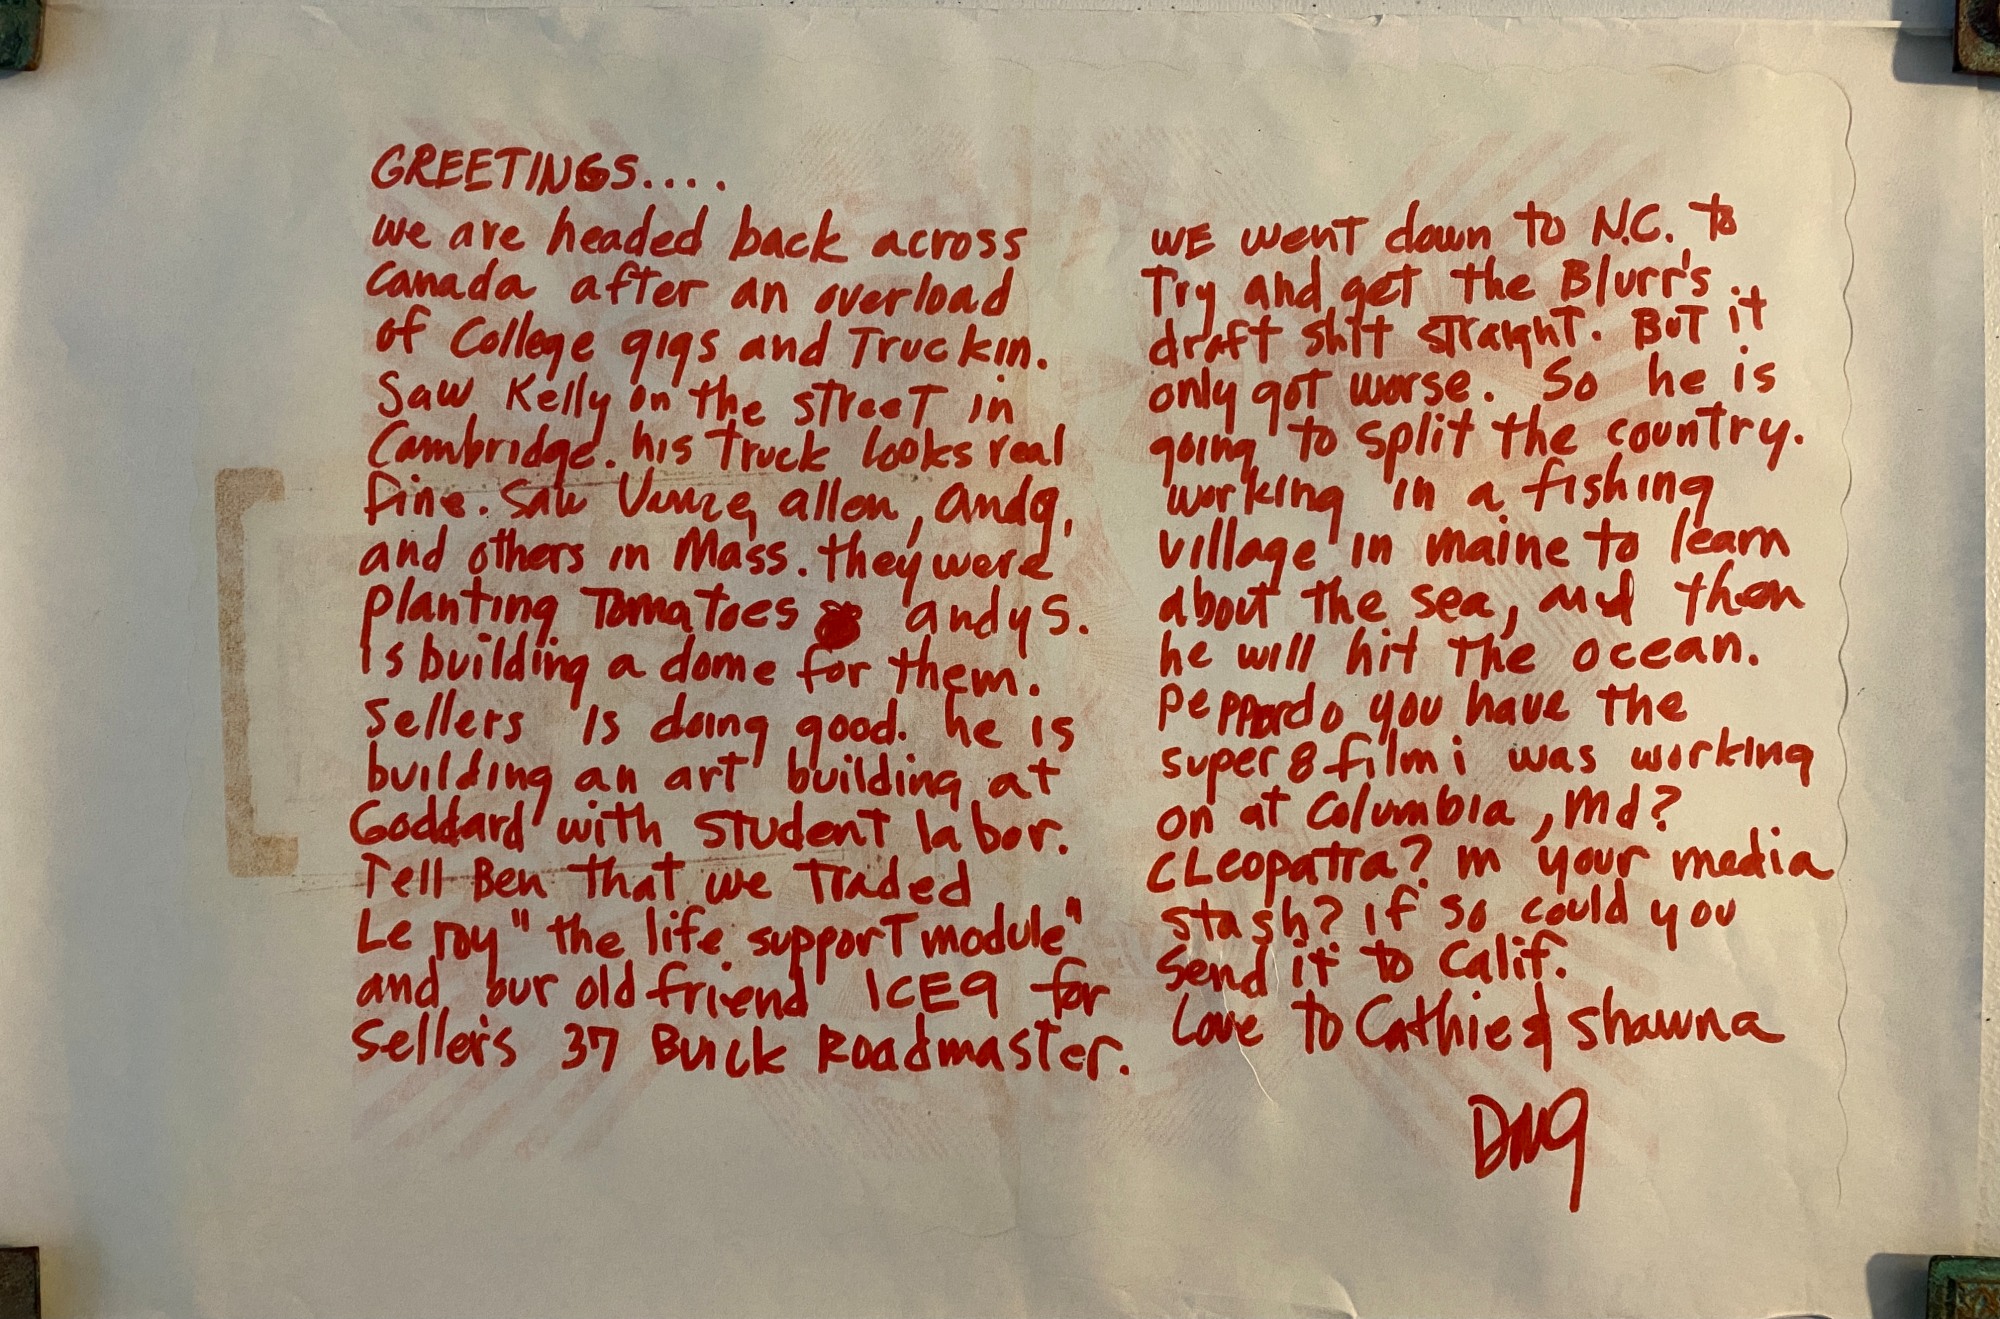 GREETINGS....
we are headed back across
Canada after an overload
of College gigs and Truckin.
Saw Kelly on the street in
Cambridge. his truck looks real
fine. Saw allen, andy,
and others in Mass. they were
planting Tomatoes andy S.
is building a dome for them.
Sellers is doing good. he is
building an art building at
Goddard with student labor.
Tell Ben that we traded
Le roy "the life support module"
and our old friend ICE9 for
Seller's 37 Buick Roadmaster.
WE went down to N.C. to
Try and get the Blurr's
draft shit straight. But it
only got worse. So he is
going to split the country.
working in a fishing
village in maine to learn
about the sea, and then
he will hit the ocean.
do you have the
super 8 film i was working
on at Columbia, Md?
CLeopatra? in your media
stash? if so could you
Send it to Calif.
Love to Cathie & Shawna